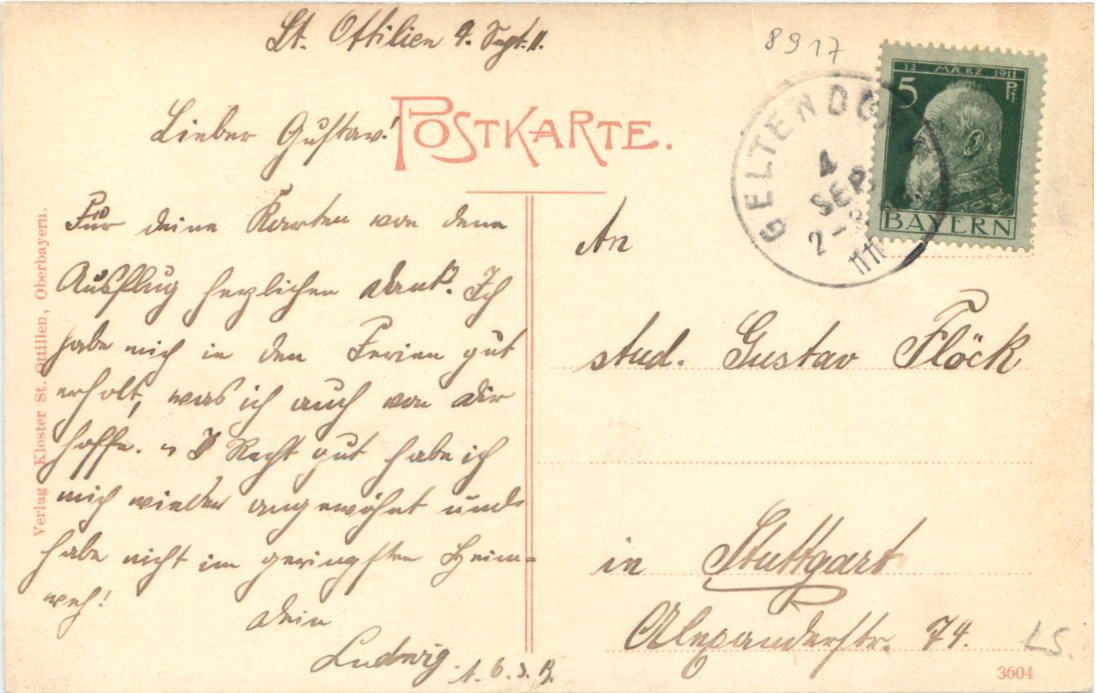 St. Ottilien 4. Sept. 11.
8917
Lieber Gustav!
POSTKARTE.
Für deine Karten von dem
Ausflug herzlichen Dank. Ich
habe mich in den Ferien gut
erholt, was ich auch von dir
hoffe. Recht gut habe ich
mich wieder angewöhnt und
habe nicht im geringsten Heim-
weh!
Dein
Ludwig
12 MÄRZ 1911
5 Pf
BAYERN
GELTENDO
4
SEP.
2-
11
An
stud. Gustav Flöck
in Stuttgart
Alexanderstr. 74.
LS.
3604
Verlag Kloster St. Ottilien, Oberbayern.